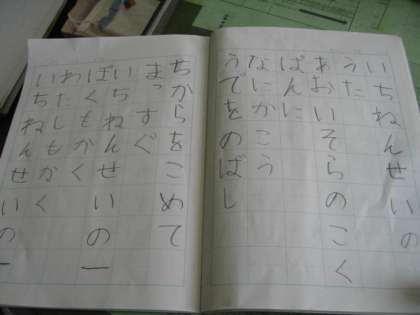 いちねんせいの
うた
あおいそらのこく
ばんに
なにかこう
うでをのばし
ちからをこめて
まっすぐ
いちねんせいの一
ぼくもかく
わたしもかく
いちねんせいの一